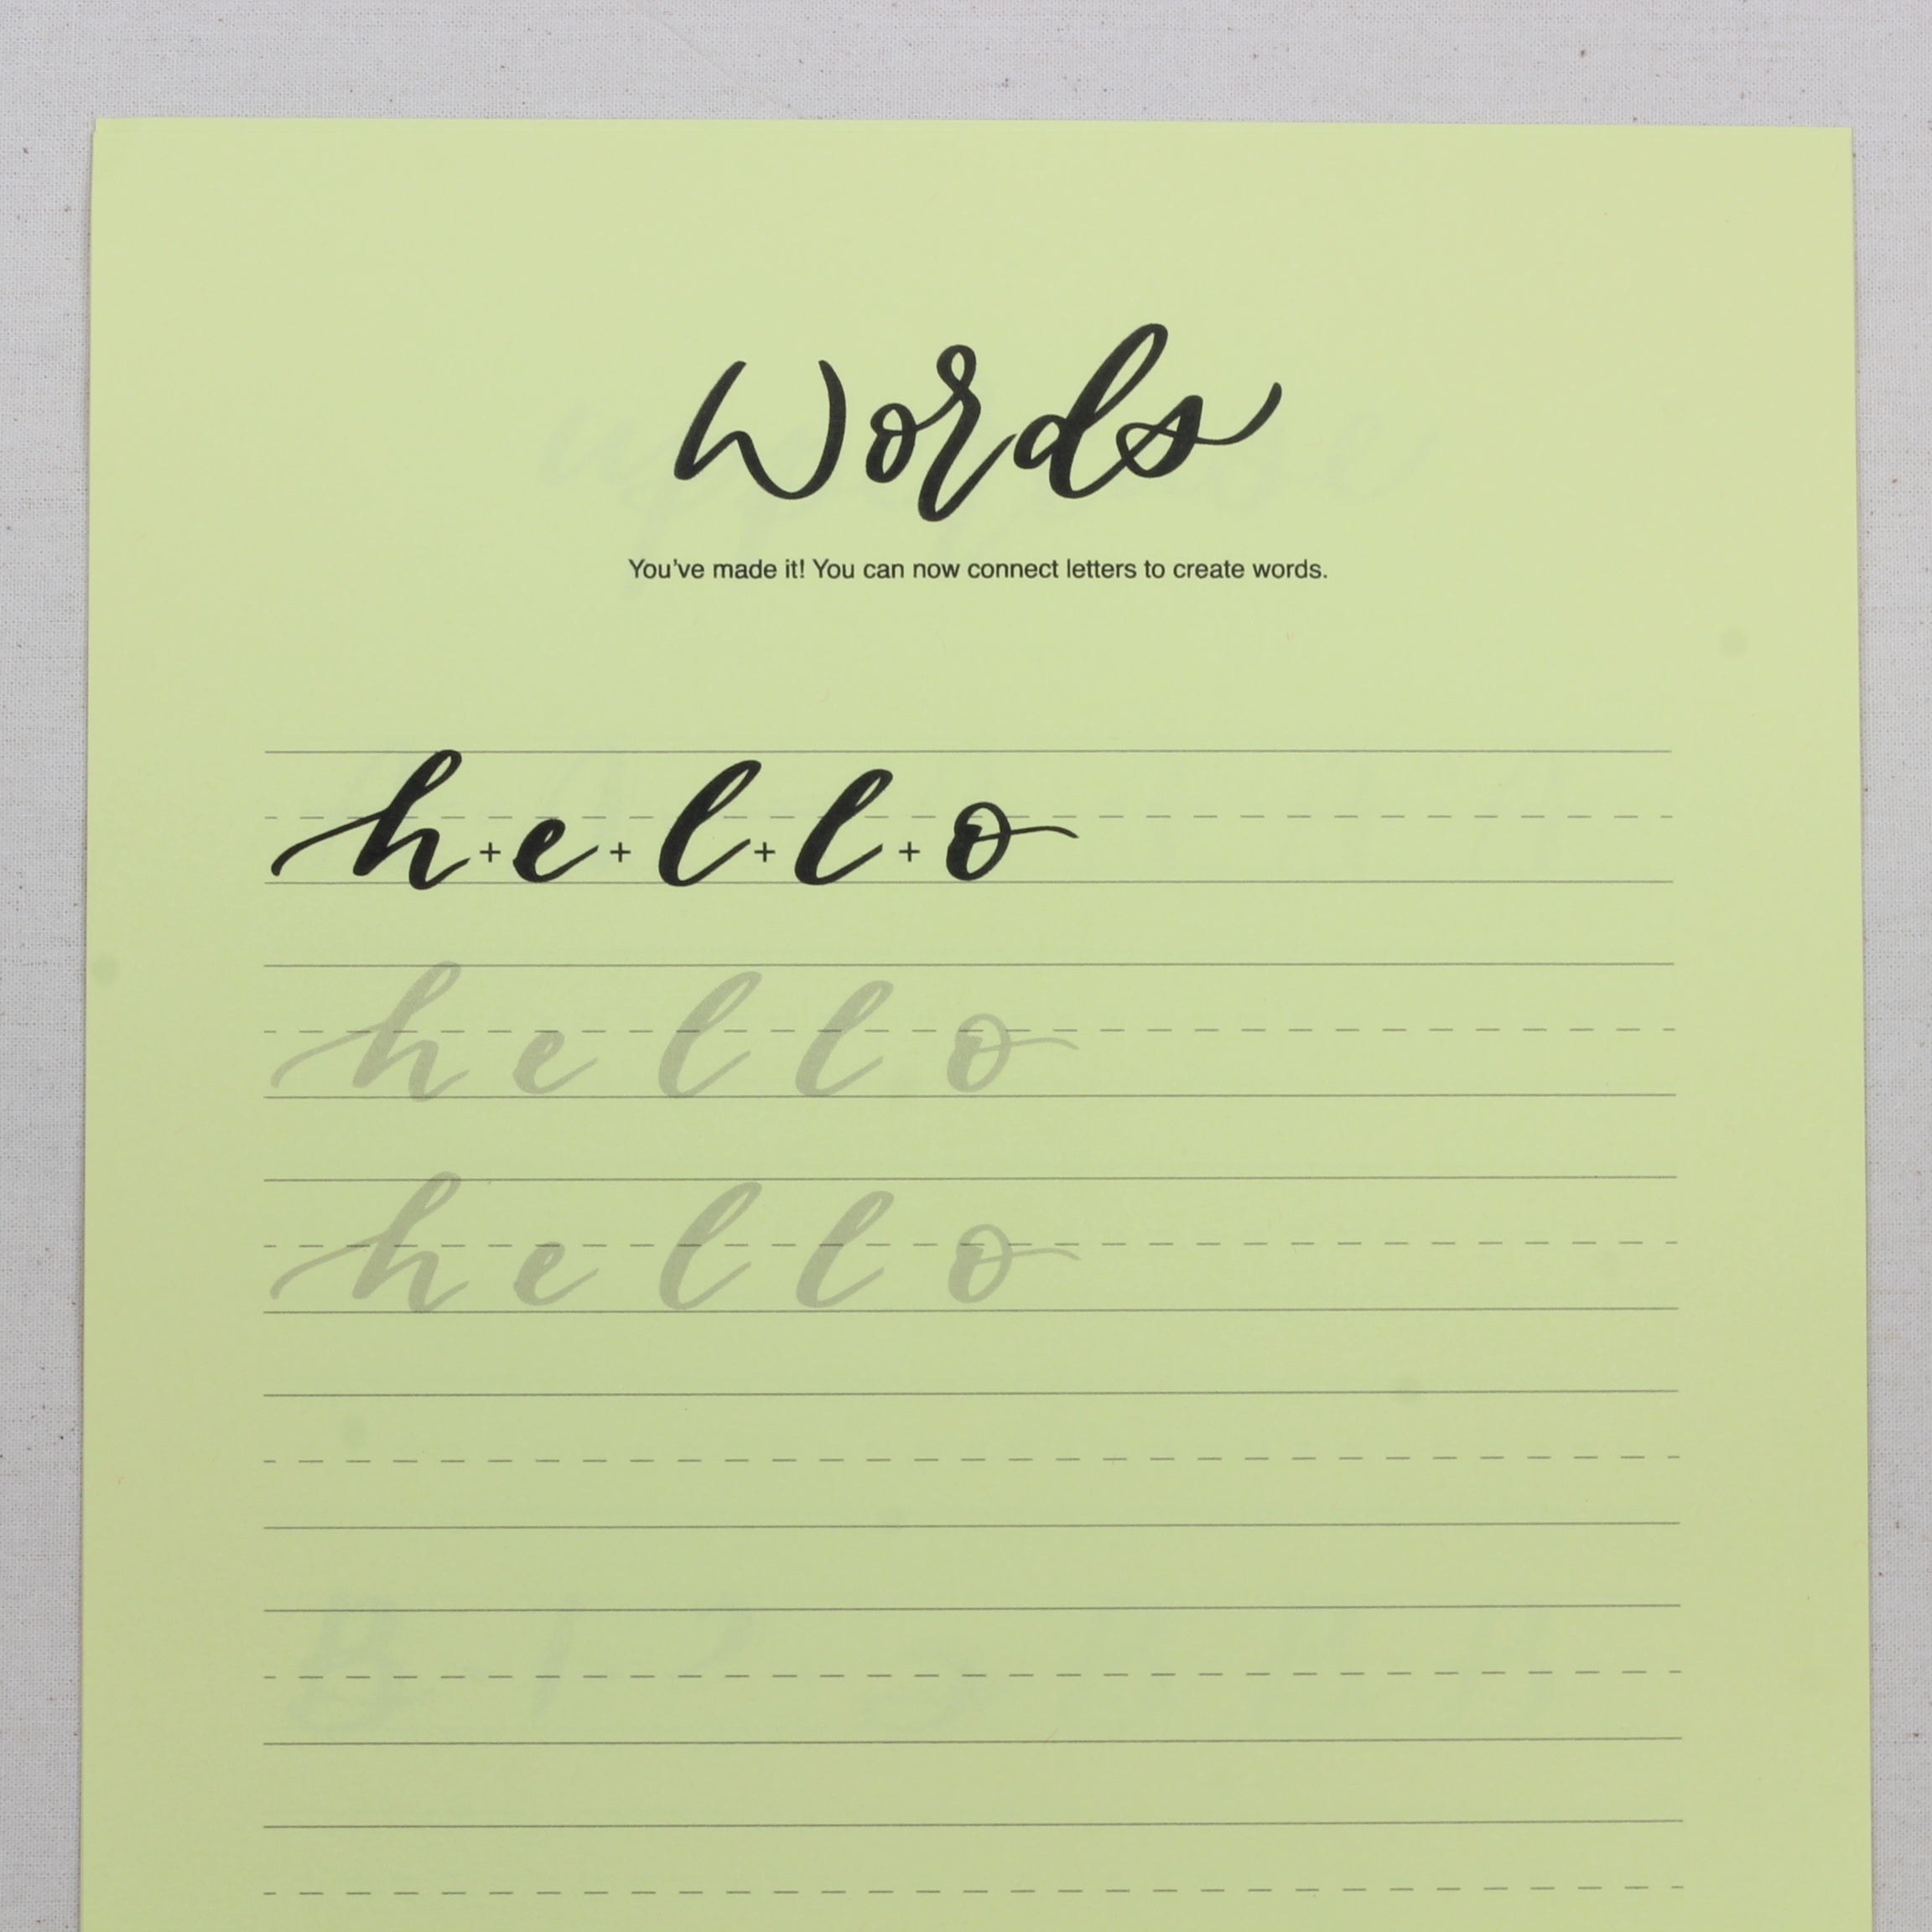 Words
You've made it! You can now connect letters to create words.
h + e + l + l + o
h e l l o
h e l l o